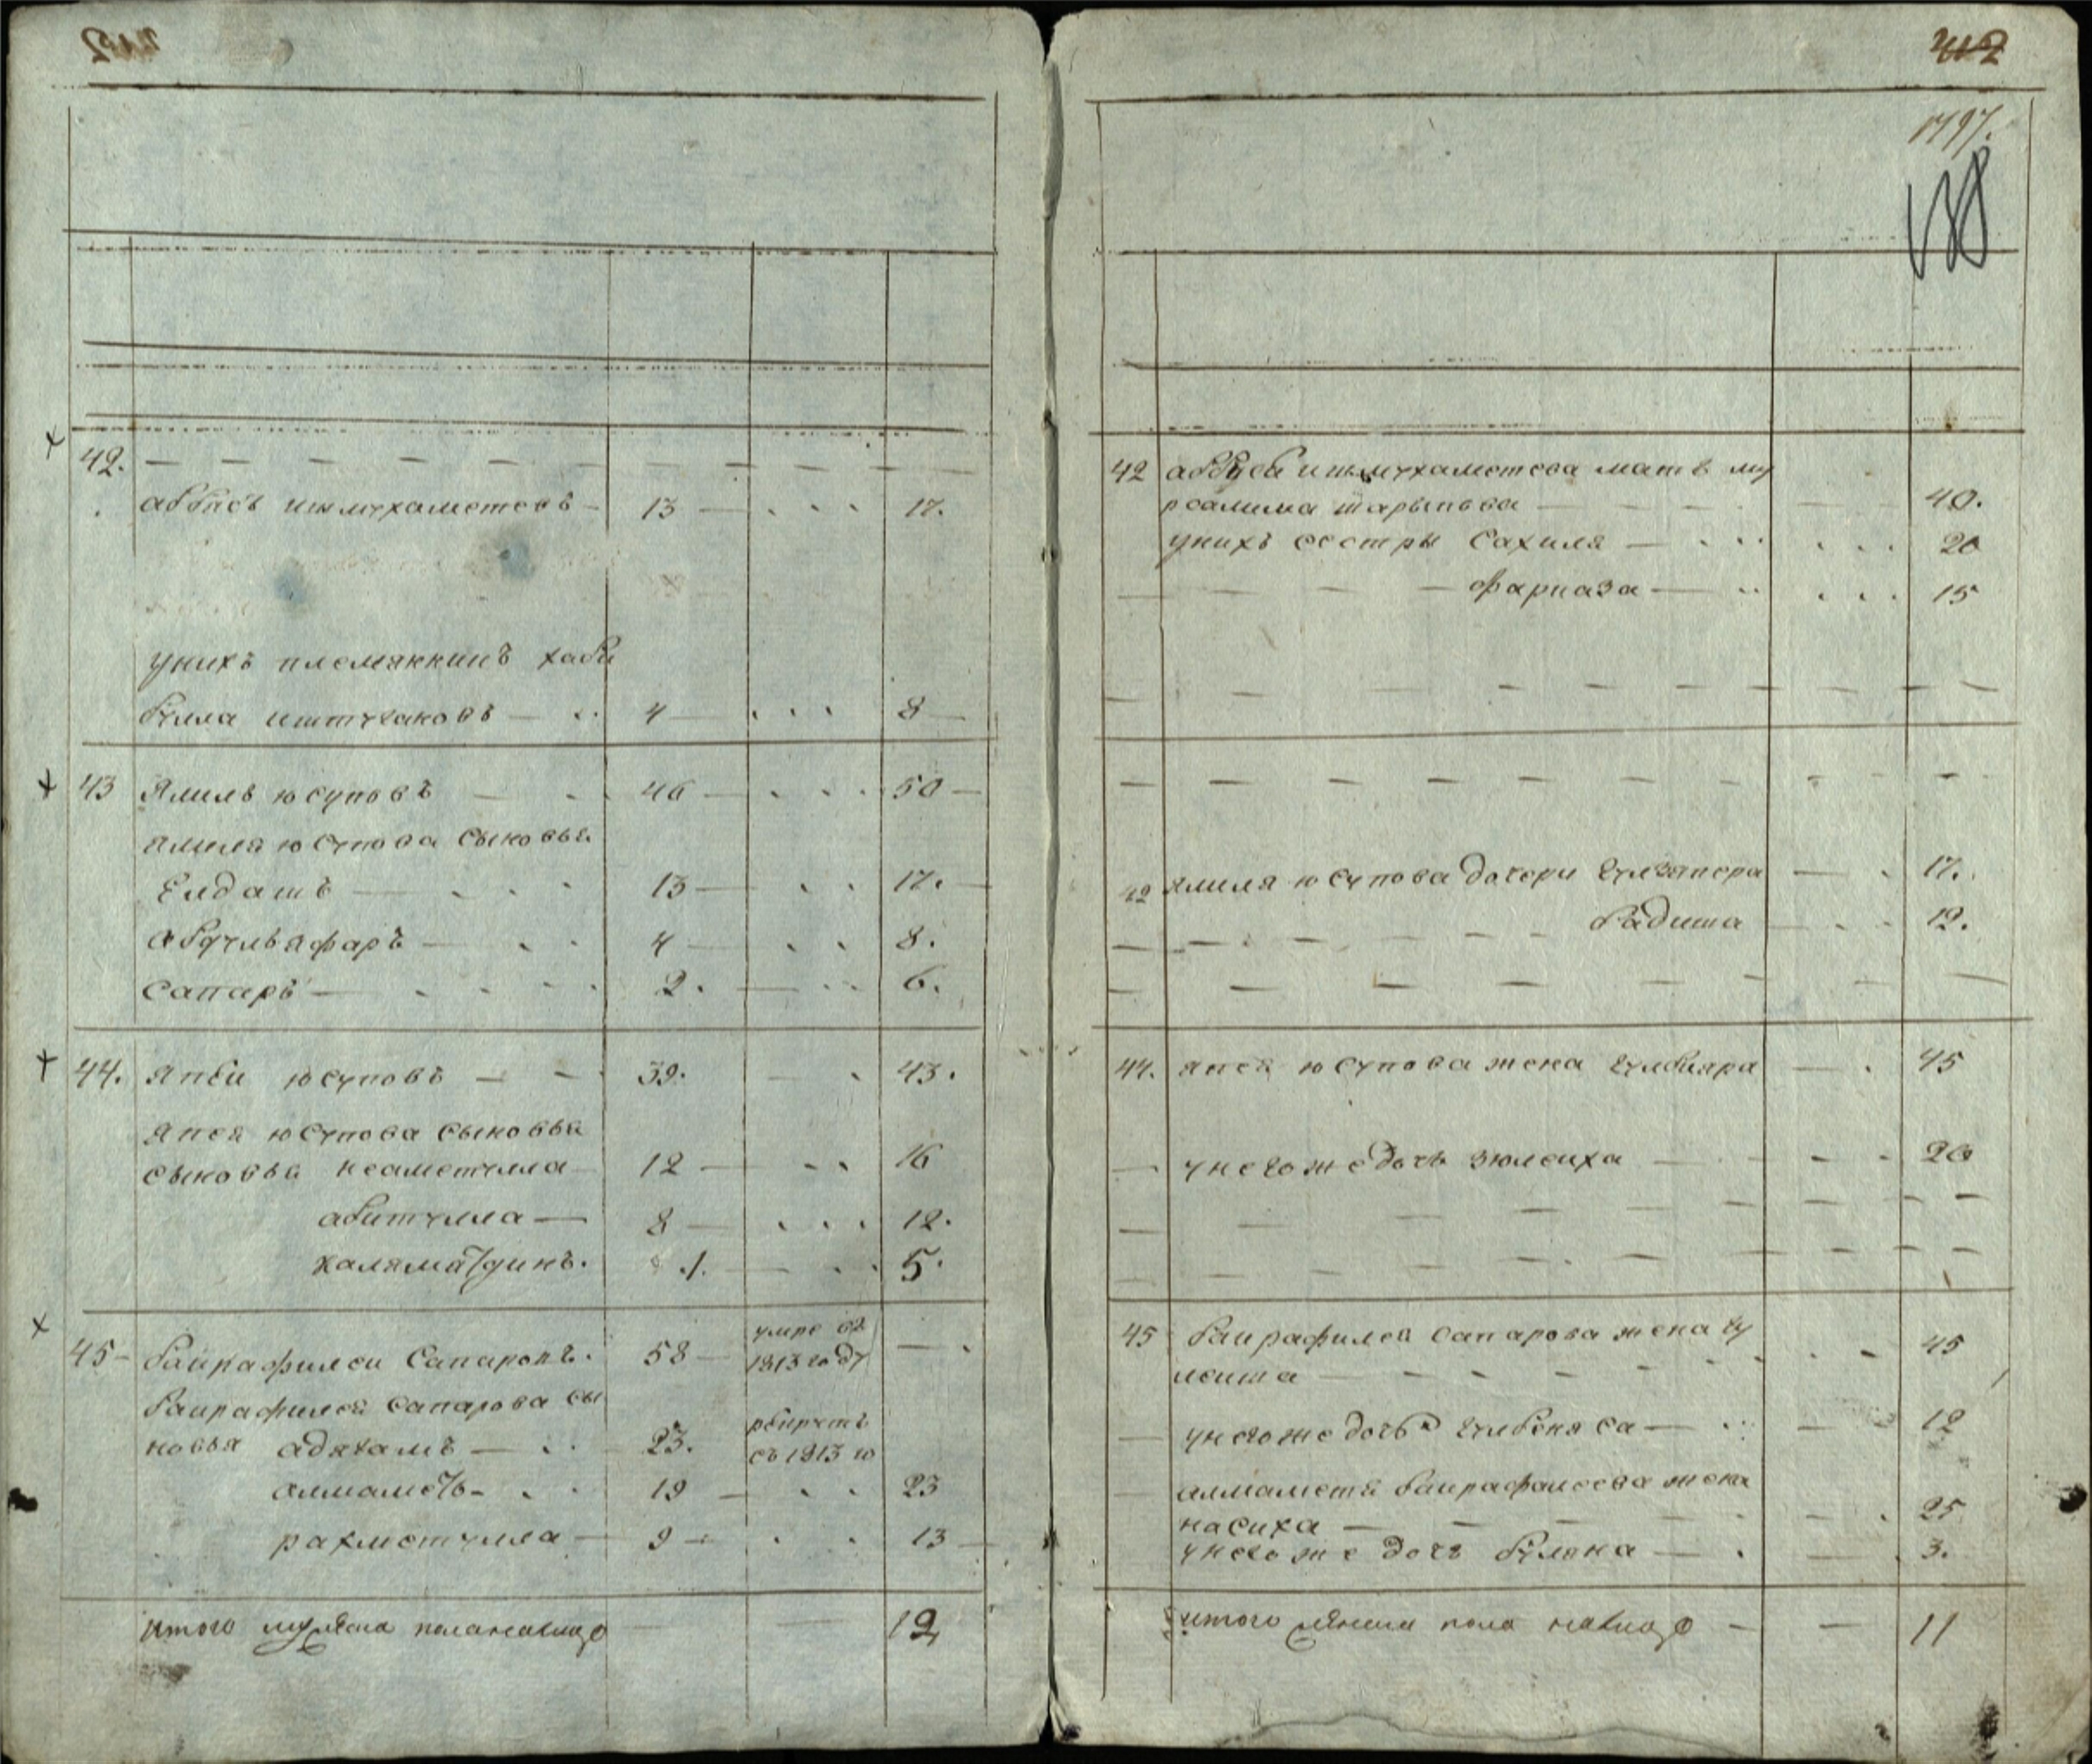 42.
аббасъ ишмухаметовъ 13 17.
унихъ племянникъ хаби
булла иштугановъ 4 8
43 Ялиль юсуповъ 46 50
ялиля юсупова сыновья
Елдашъ 13 17.
абдулвяфаръ 4 8.
сапаръ 2. 6.
44. япѣи юсуповъ 39. 43.
япея юсупова сыновья
сыновья неаметулла 12 16
абитулла 8 12.
халяматдинъ. 1. 5.
45 баирафилеи Сапаровъ. 58 умре въ
1813 году
баирафилея сапарова сы
новья адягамъ 23.
съ 1813 го
алмаметь 19 23
рахметулла 9 13
итого мужеска пола налицо 12
412
1797.
188
42 аббуса ишмухаметова мать му
рсалима шарыпова 40.
унихъ сестры Сахиля 20
фарказа 15
42 ялиля юсупова дочери гулзяпера 17.
бадиша 12.
44. япея юсупова жена гулбияра 45
у негоже дочь зюлеиха 20
45 баирафилея сапарова жена гу
леиша 45
унегоже дочь гулбеняса 12
алмаметя баирафилеева жена
насиха 25
унегоже дочь буляка 3.
итого женска пола налицо 11